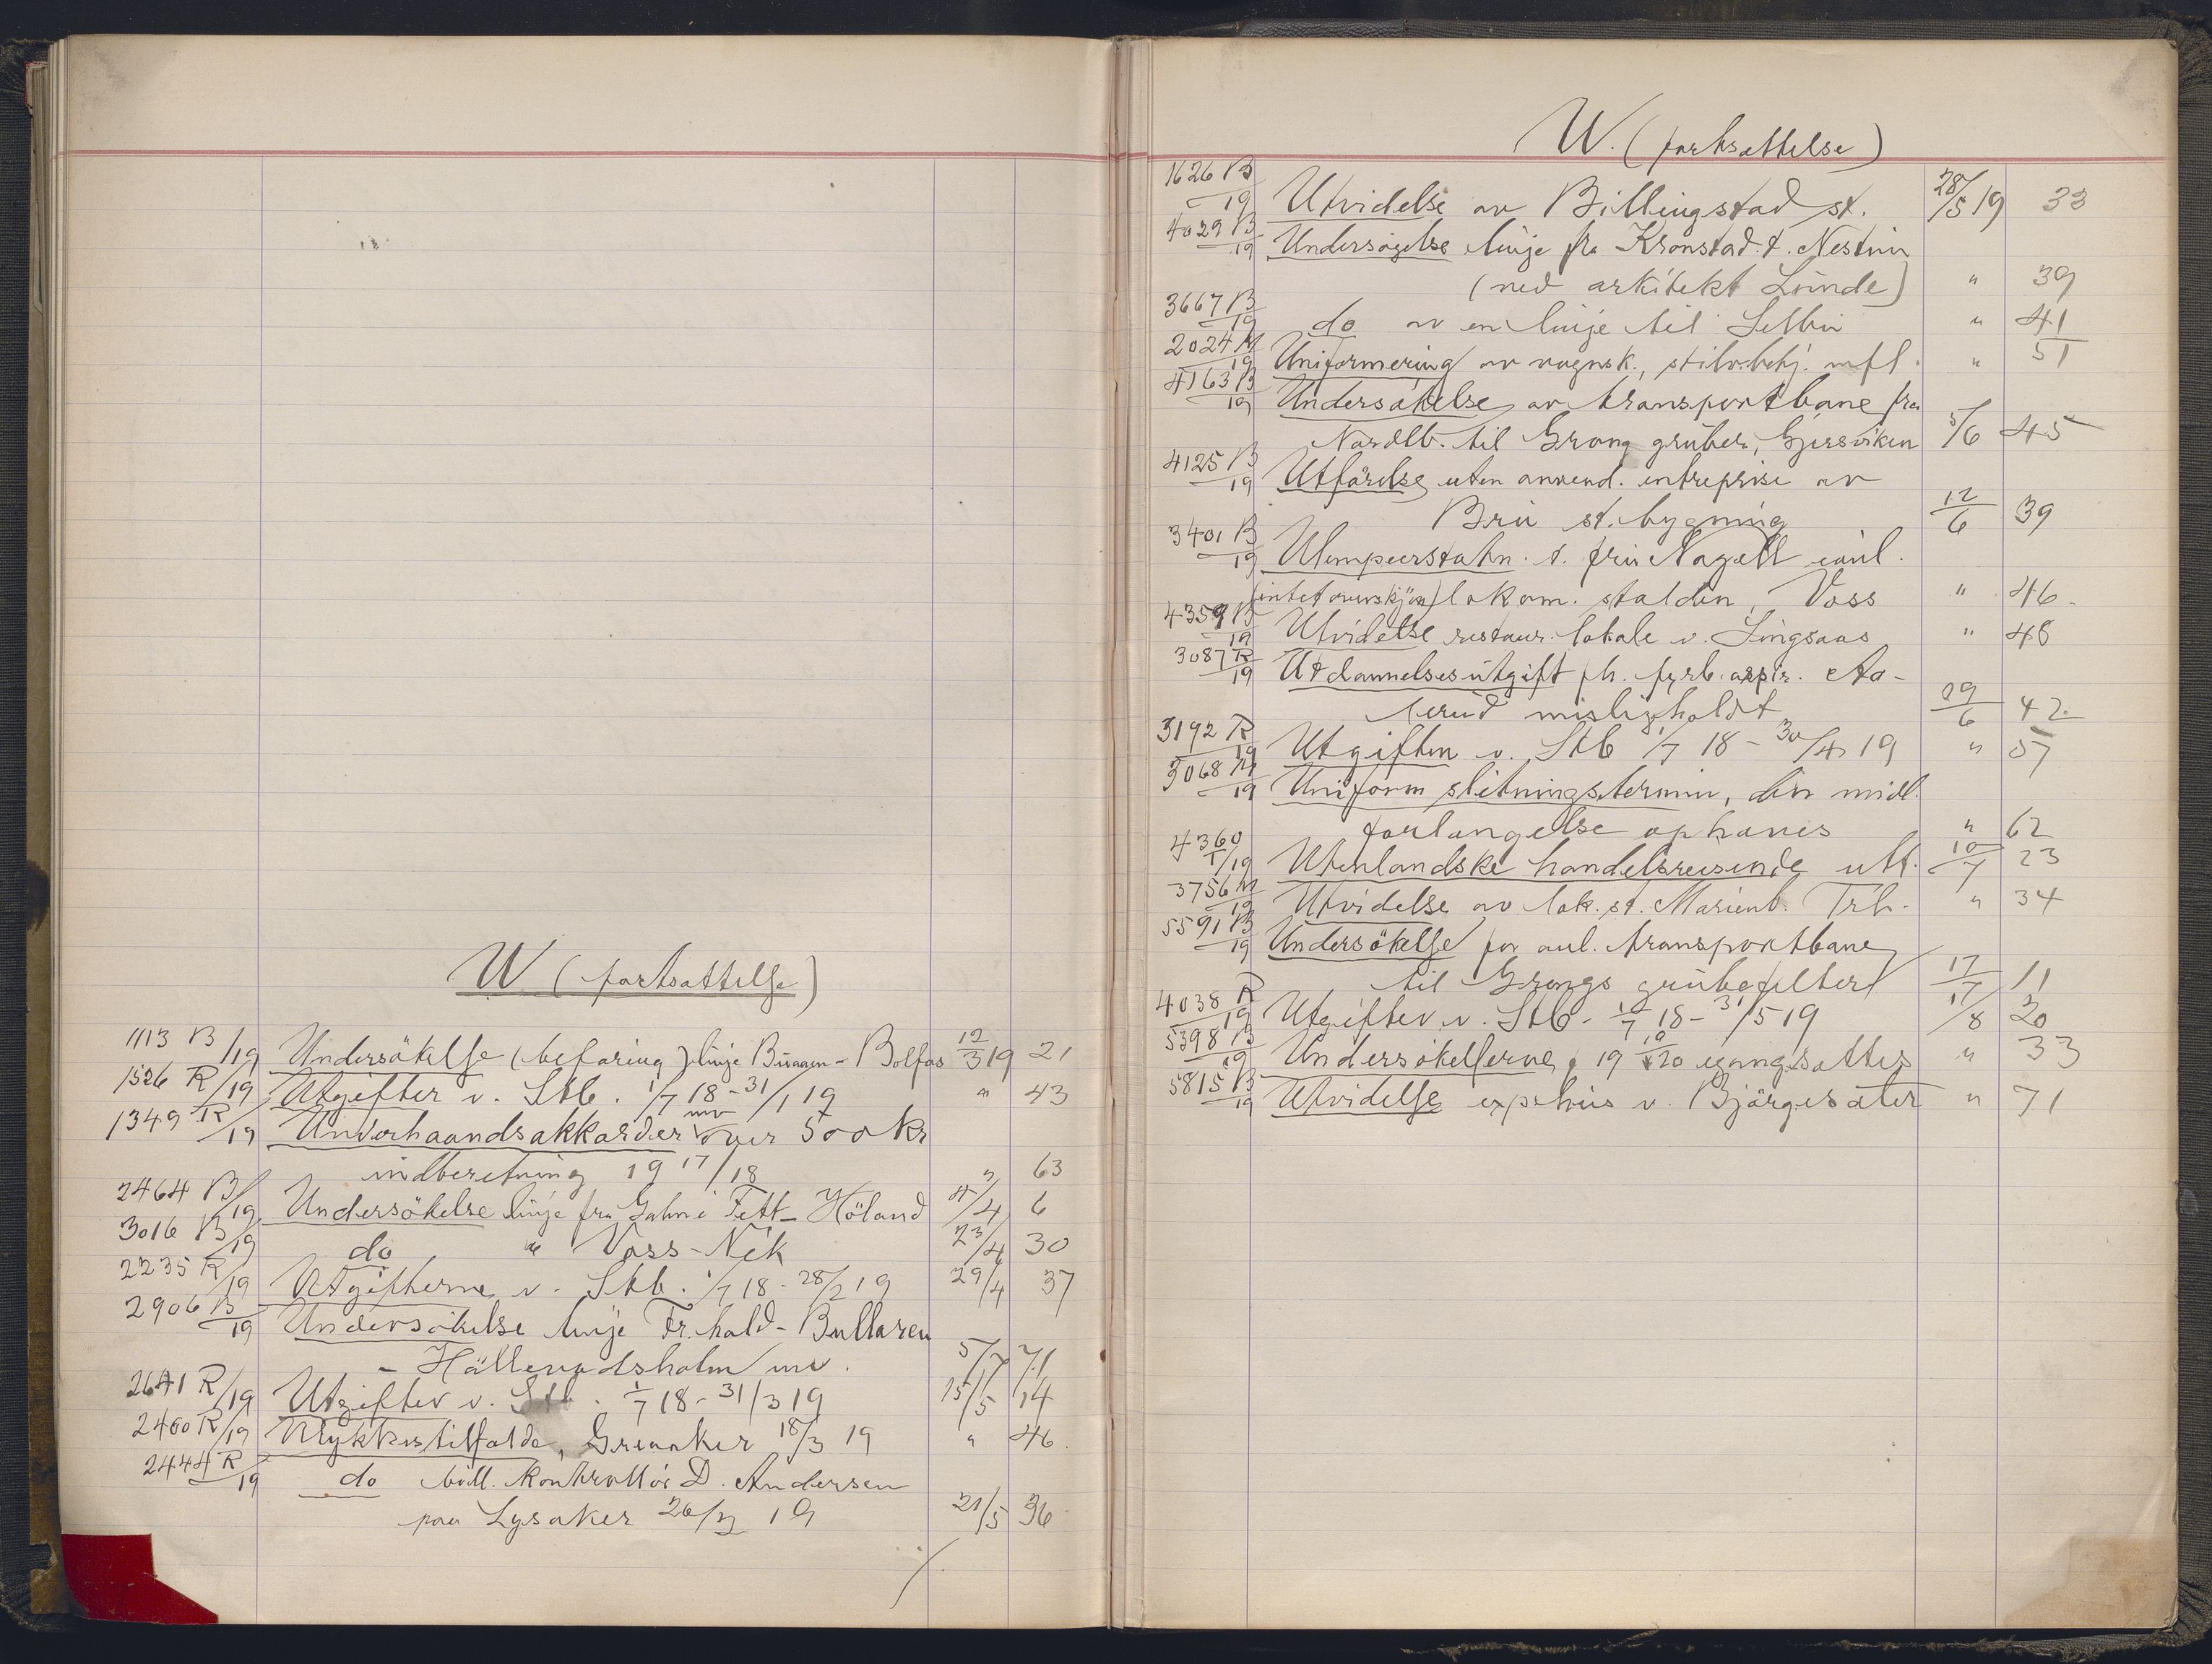 W (fortsættelse)
1113 B/19 Undersökelse (befaring) linje - Bolfos 12/3 19 21
1526 R/19 Utgifter v. Stb. 1/7 18 - 31/1 19 " 43
1349 R/19 Underhaandsakkorder over 500 kr
indberetning 19 17/18 " 63
2464 B/19 Undersökelse linje fra i Fett - Höland 4/4 6
3016 B/19 do " Voss - 23/4 30
2235 R/19 Utgifterne v. Stb. 1/7 18 - 28/2 19 29/4 37
2906 B/19 Undersökelse linje Fr.hald - Bullaren
- Hällevadsholm mv. 5/ 71
2641 R/19 Utgifter v. Stb. 1/7 18 - 31/3 19 15/5 14
2460 R/19 Ulykkestilfælde, Greaaker 18/3 19 " 46
2444 R/19 do bill. kontrollör D. Andersen
paa Lysaker 26/ 19 21/5 36
W. (fortsættelse)
1626 B/19 Utvidelse av Billingstad st. 28/5 19 33
4029 B/19 Undersögelse linje fra Kronstad t. Nestun
(ved arkitekt Lunde) " 39
3667 B/19 do av en linje til " 41
2024 M/19 Uniformering av vognsk., mfl. " 51
4163 B/19 Undersökelse av transportbane fra
Nordlb. til Grong gruber, Gjersviken 5/6 45
4125 B/19 Utförelse uten anvend. entreprise av
Bru st. bygning 12/6 39
3401 B/19 Ulempeerstatn. t. fru
lokom. stalden, Voss " 46
4359 B/19 Utvidelse restaur. lokale v. Singsaas " 48
3087 R/19 Utdannelsesutgift fh. fyrb. aspir. Aa-
serud misligholdt 42
3192 R/19 Utgifter v. Stb 1/7 18 - 30/4 19 " 57
3068 M/19 Uniform slitningstermin, den midl.
forlængelse ophæves " 62
4360 /19 Utenlandske handelsreisende utt. 10/7 23
3756 M/19 Utvidelse av lok. st. Marienb. Trh. " 34
5591 B/19 Undersökelse for anl. transportbane
til Grongs grubefelter 17/7 11
4038 R/19 Utgifter v. Stb. 1/7 18 - 31/5 19 /8 20
5398 B/19 Undersökelserne, 19 19/20 igangsættes " 33
5815 B/19 Utvidelse exp.hus v. Bjørgesæter " 71